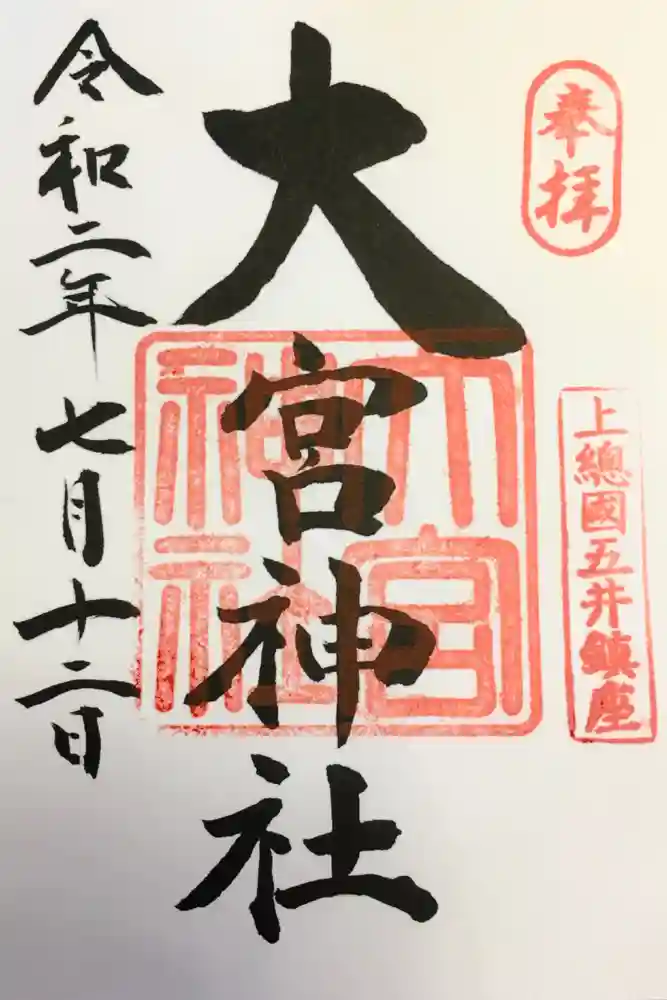 奉拝
上總國五井鎮座
大宮神社
大宮神社
令和二年七月十二日